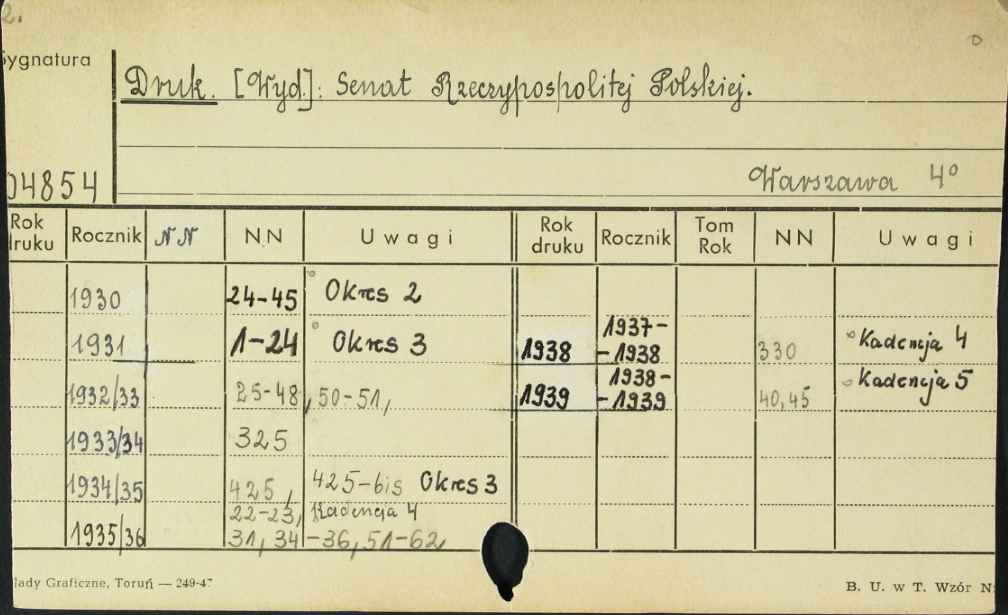 2.
Sygnatura
Druk. [Wyd.]: Senat Rzeczypospolitej Polskiej.
04854
Warszawa 4°
Rok druku Rocznik NN NN Uwagi Rok druku Rocznik Tom Rok NN Uwagi
1930 24-45 ° Okres 2
1931 1-24 ° Okres 3 1938 1937-1938 330 ° Kadencja 4
1932/33 25-48, 50-51, 1939 1938-1939 40,45 ° Kadencja 5
1933/34 325
1934/35 425, 425-bis Okres 3
22-23, Kadencja 4
1935/36 31, 34-36, 51-62
łady Graficzne, Toruń — 249-47
B. U. w T. Wzór N